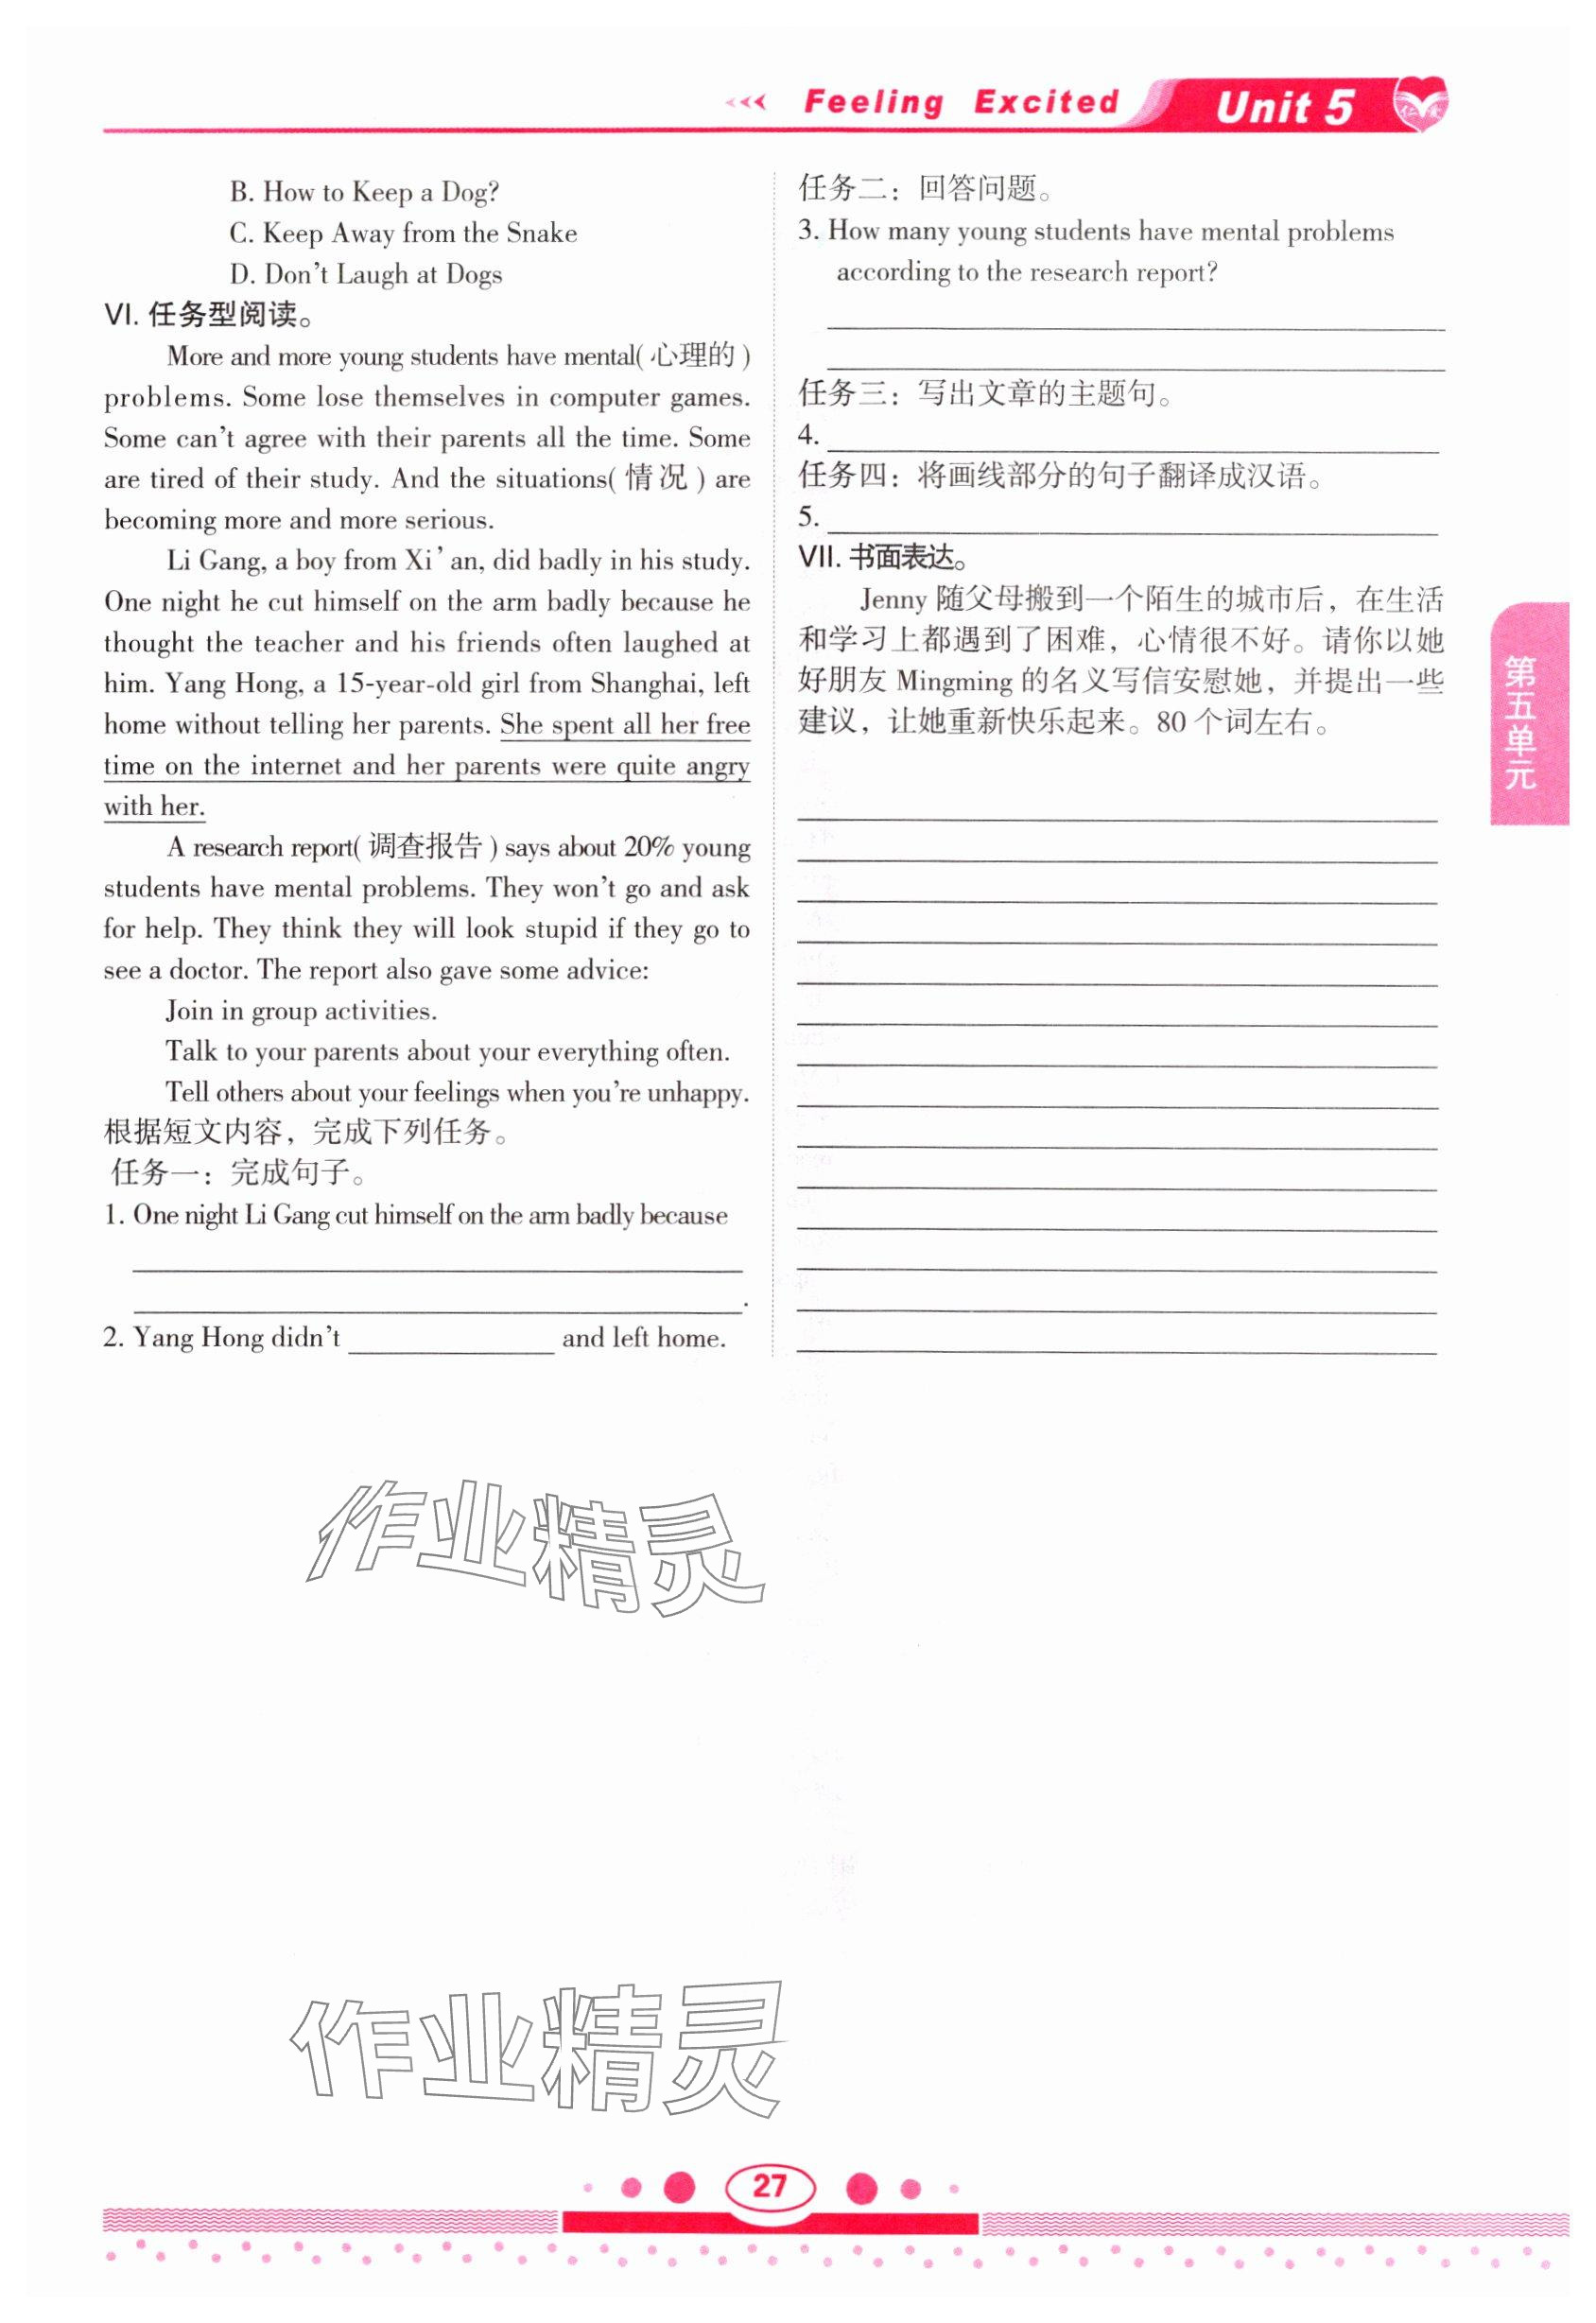 Feeling Excited Unit 5
仁爱
B. How to Keep a Dog?
C. Keep Away from the Snake
D. Don't Laugh at Dogs
VI. 任务型阅读。
More and more young students have mental(心理的)
problems. Some lose themselves in computer games.
Some can't agree with their parents all the time. Some
are tired of their study. And the situations(情况) are
becoming more and more serious.
Li Gang, a boy from Xi'an, did badly in his study.
One night he cut himself on the arm badly because he
thought the teacher and his friends often laughed at
him. Yang Hong, a 15-year-old girl from Shanghai, left
home without telling her parents. She spent all her free
time on the internet and her parents were quite angry
with her.
A research report(调查报告) says about 20% young
students have mental problems. They won't go and ask
for help. They think they will look stupid if they go to
see a doctor. The report also gave some advice:
Join in group activities.
Talk to your parents about your everything often.
Tell others about your feelings when you're unhappy.
根据短文内容，完成下列任务。
任务一：完成句子。
1. One night Li Gang cut himself on the arm badly because
.
2. Yang Hong didn't ______ and left home.
任务二：回答问题。
3. How many young students have mental problems
according to the research report?
任务三：写出文章的主题句。
4.
任务四：将画线部分的句子翻译成汉语。
5.
VII. 书面表达。
Jenny 随父母搬到一个陌生的城市后，在生活
和学习上都遇到了困难，心情很不好。请你以她
好朋友 Mingming 的名义写信安慰她，并提出一些
建议，让她重新快乐起来。80 个词左右。
第五单元
作业精灵
作业精灵
27